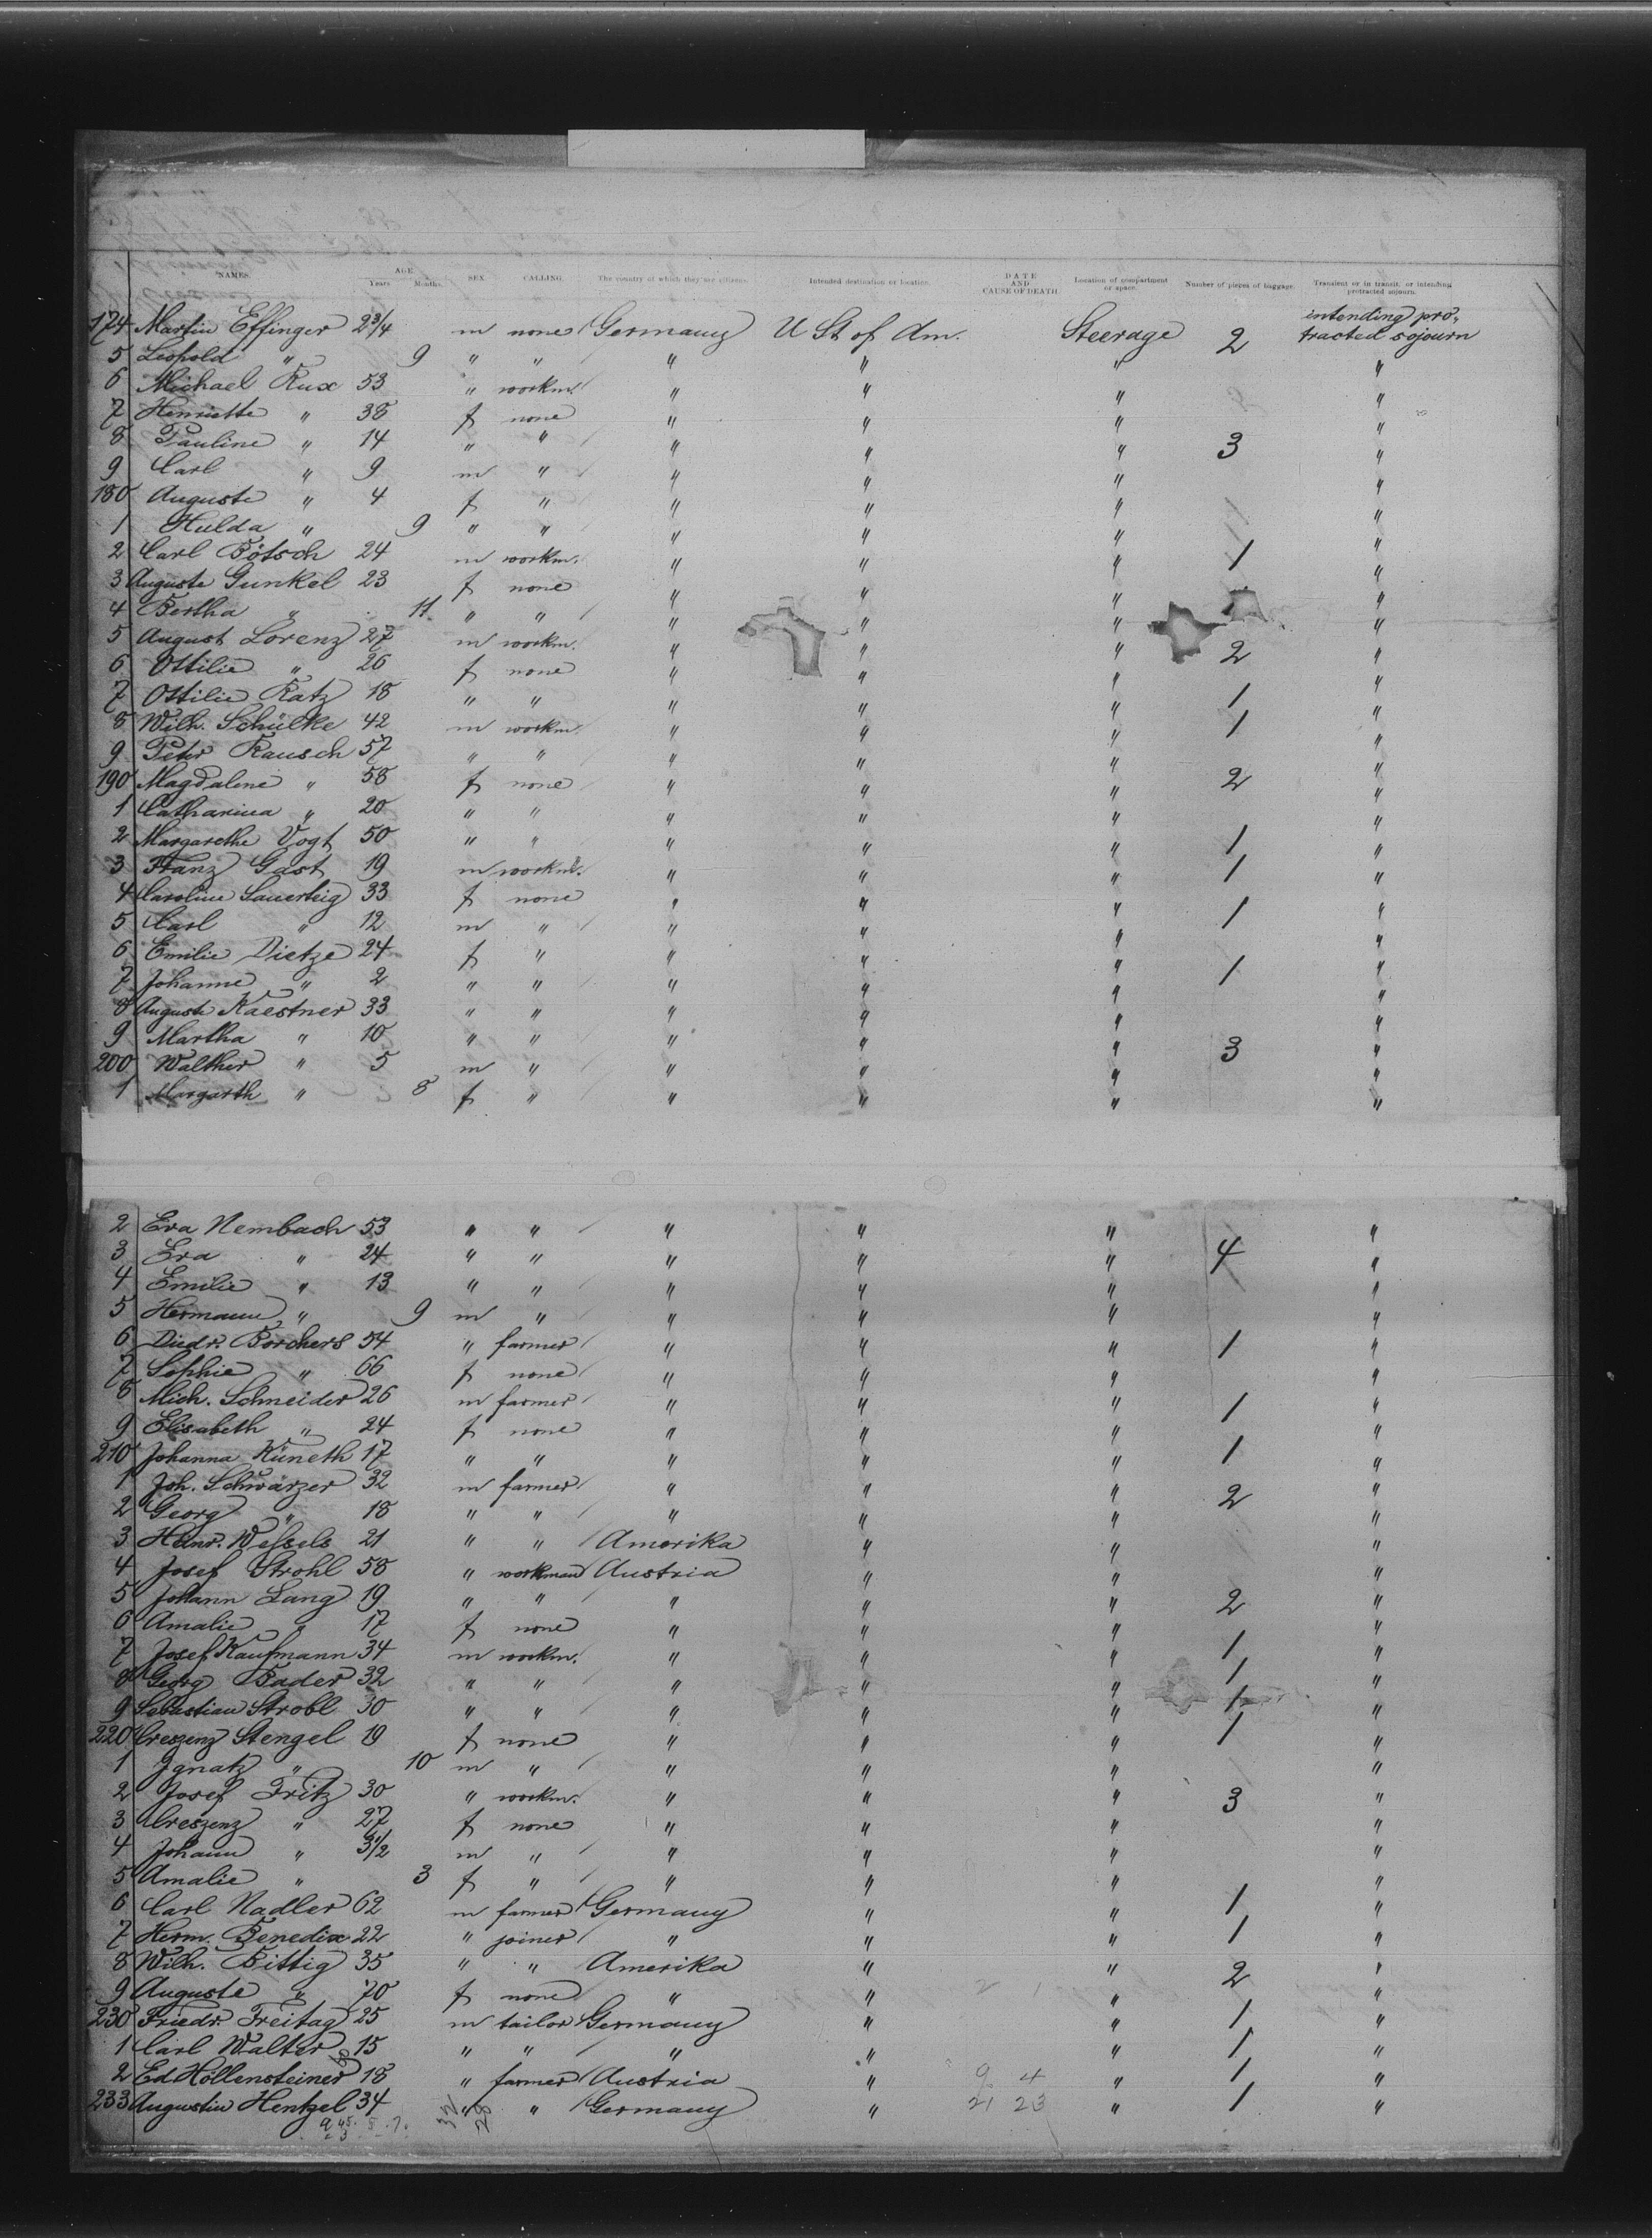 NAMES. AGE Years Months. SEX. CALLING. The country of which they are citizens. Intended destination or location. DATE AND CAUSE OF DEATH. Location of compartment or space. Number of pieces of baggage. Transient or in transit, or intending protracted sojourn.
174 Martin Effinger 2 3/4 m none Germany U St of Am. Steerage 2 intending pro-tracted sojourn
5 Leopold " 9 " " " " " "
6 Michael Rux 53 " workm. " " " "
7 Henriette " 38 f none " " " "
8 Pauline " 14 " " " " " 3 "
9 Carl " 9 m " " " " "
180 Auguste " 4 f " " " " "
1 Hulda " 9 " " " " " "
2 Carl Bötsch 24 m workm. " " " 1 "
3 Auguste Gunkel 23 f none " " " "
4 Bertha " 11 " " " " " "
5 August Lorenz 27 m workm. " " " 2 "
6 Ottilie " 26 f none " " " "
7 Ottilie Ratz 18 " " " " " 1 "
8 Wilh. Schülke 42 m workm. " " " 1 "
9 Peter Rausch 57 " " " " " "
190 Magdalene " 58 f none " " " 2 "
1 Catharina " 20 " " " " " "
2 Margarethe Vogt 50 " " " " " 1 "
3 Franz Gast 19 m workm. " " " 1 "
4 Caroline Sauerteig 33 f none " " " 1 "
5 Carl " 12 m " " " " "
6 Emilie Dietze 24 f " " " " 1 "
7 Johanne " 2 " " " " " "
8 Auguste Kaestner 33 " " " " " "
9 Martha " 10 " " " " " 3 "
200 Walther " 5 m " " " " "
1 Margarth " 8 f " " " " "
2 Eva Nembach 53 " " " " " "
3 Eva " 24 " " " " " 4 "
4 Emilie " 13 " " " " " "
5 Hermann " 9 m " " " " "
6 Diedr. Borchers 54 " farmer " " " 1 "
7 Sophie " 66 f none " " " "
8 Mich. Schneider 26 m farmer " " " 1 "
9 Elisabeth " 24 f none " " " "
210 Johanna Küneth 17 " " " " " 1 "
1 Joh. Schwärzer 32 m farmer " " " 2 "
2 Georg " 18 " " " " " "
3 Heinr. Wessels 21 " " Amerika " " "
4 Josef Strohl 58 " workman Austria " " "
5 Johann Lang 19 " " " " " 2 "
6 Amalie " 17 f none " " " "
7 Josef Kaufmann 34 m workm. " " " 1 "
8 Georg Bader 32 " " " " " 1 "
9 Sebastian Strobl 30 " " " " " 1 "
220 Creszenz Stengel 19 f none " " " 1 "
1 Ignatz " 10 m " " " " "
2 Josef Fritz 30 " workm. " " " 3 "
3 Creszenz " 27 f none " " " "
4 Johann " 3 1/2 m " " " " "
5 Amalie " 3 f " " " " "
6 Carl Nadler 62 m farmer Germany " " 1 "
7 Herm. Benedix 22 " joiner " " " 1 "
8 Wilh. Bittig 35 " " Amerika " " 2 "
9 Auguste " 70 f none " " " "
230 Friedr. Freitag 25 m tailor Germany " " 1 "
1 Carl Walter 15 " " " " " 1 "
2 Ed. Höllensteiner 18 " farmer Austria " 9 4 " 1 "
233 Augustin Hentzel 34 " " Germany " 21 23 " 1 "